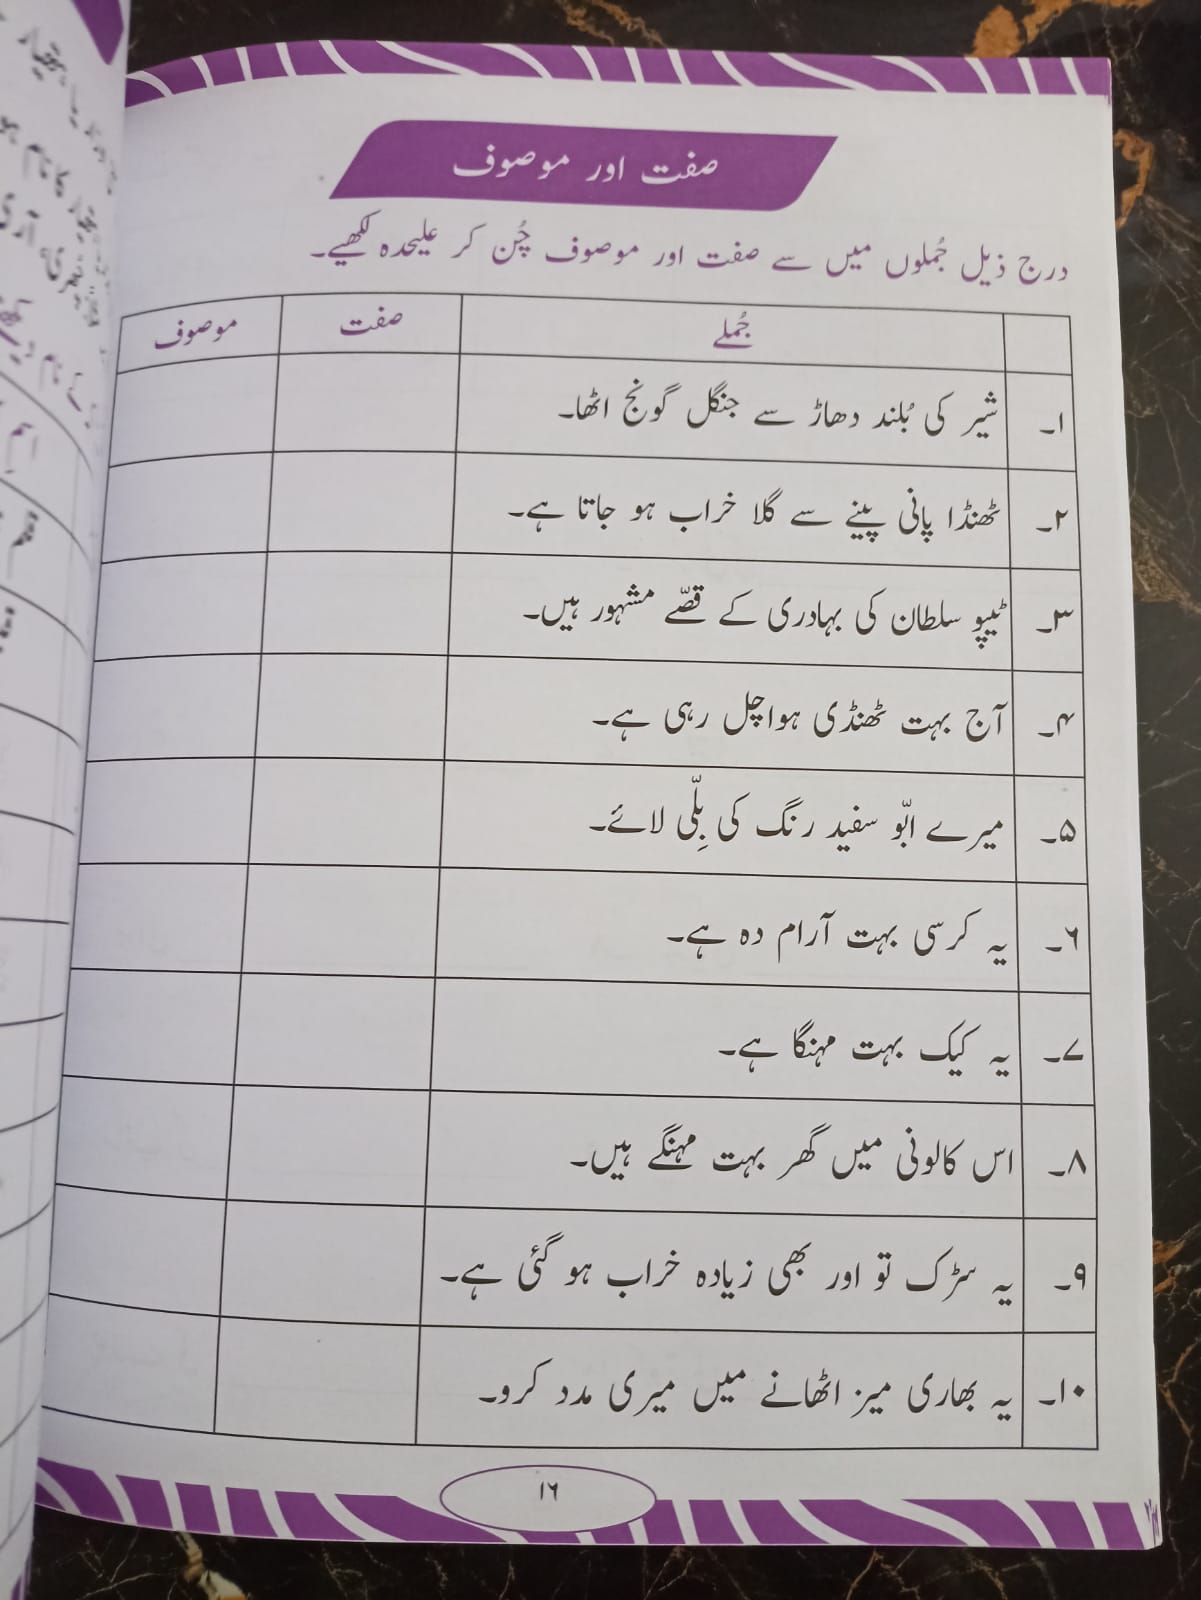 صفت اور موصوف
درج ذیل جُملوں میں سے صفت اور موصوف چُن کر علیحدہ لکھیے۔
جُملے صفت موصوف
۱۔ شیر کی بُلند دھاڑ سے جنگل گونج اٹھا۔
۲۔ ٹھنڈا پانی پینے سے گلا خراب ہو جاتا ہے۔
۳۔ ٹیپو سلطان کی بہادری کے قصّے مشہور ہیں۔
۴۔ آج بہت ٹھنڈی ہوا چل رہی ہے۔
۵۔ میرے ابّو سفید رنگ کی بِلّی لائے۔
۶۔ یہ کرسی بہت آرام دہ ہے۔
۷۔ یہ کیک بہت مہنگا ہے۔
۸۔ اس کالونی میں گھر بہت مہنگے ہیں۔
۹۔ یہ سڑک تو اور بھی زیادہ خراب ہو گئی ہے۔
۱۰۔ یہ بھاری میز اٹھانے میں میری مدد کرو۔
۱۶